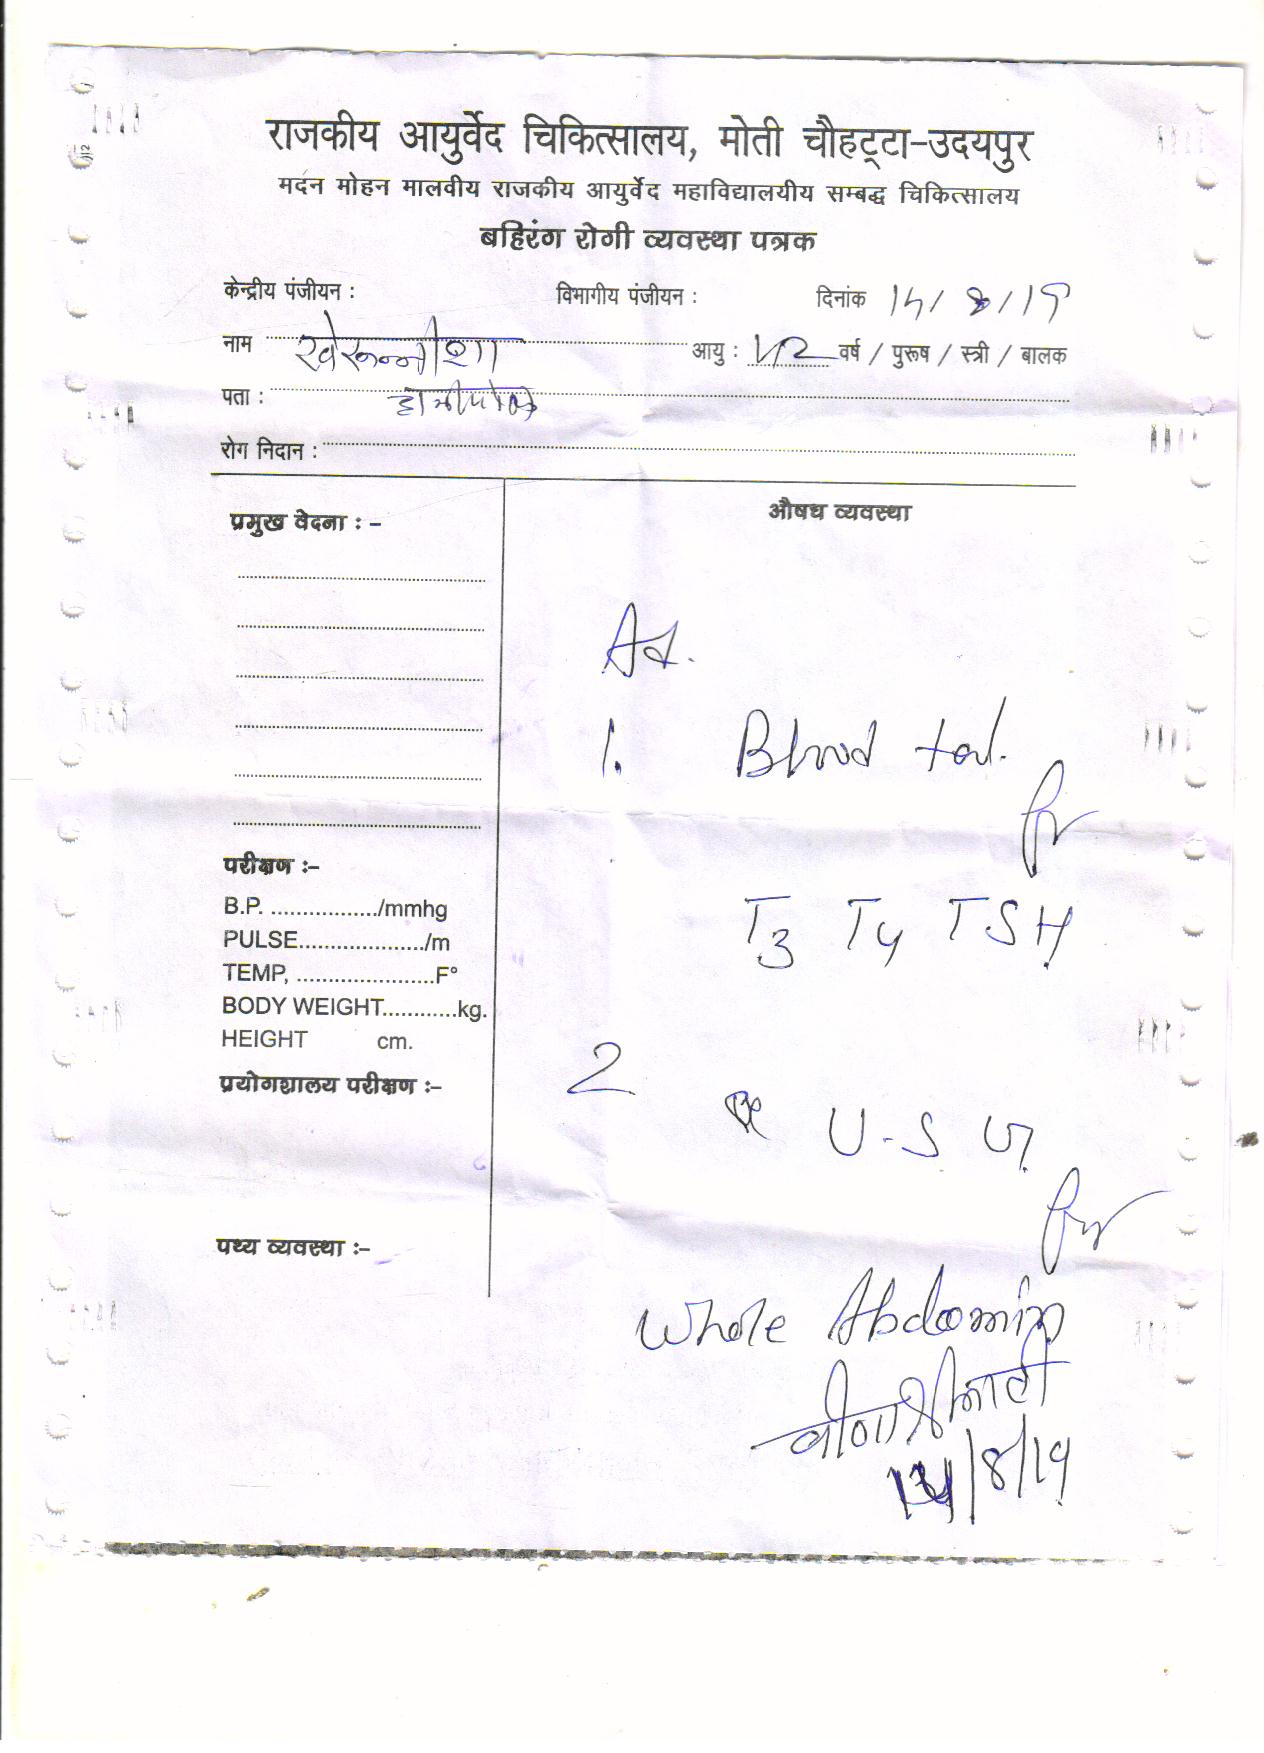 राजकीय आयुर्वेद चिकित्सालय, मोती चौहट्टा-उदयपुर
मदन मोहन मालवीय राजकीय आयुर्वेद महाविद्यालयीय सम्बद्ध चिकित्सालय
बहिरंग रोगी व्यवस्था पत्रक
केन्द्रीय पंजीयन : विभागीय पंजीयन : दिनांक /8/19
नाम आयु : वर्ष / पुरूष / स्त्री / बालक
पता : हाथीपोल
रोग निदान :
प्रमुख वेदना : -
औषध व्यवस्था
Ad.
1. Blood
for
T3 T4 TSH
परीक्षण :-
B.P. ................./mmhg
PULSE..................../m
TEMP, ......................F°
BODY WEIGHT............kg.
HEIGHT cm.
प्रयोगशालय परीक्षण :-
2 U-S G
for
पथ्य व्यवस्था :-
Whole Abdomin
/8/19